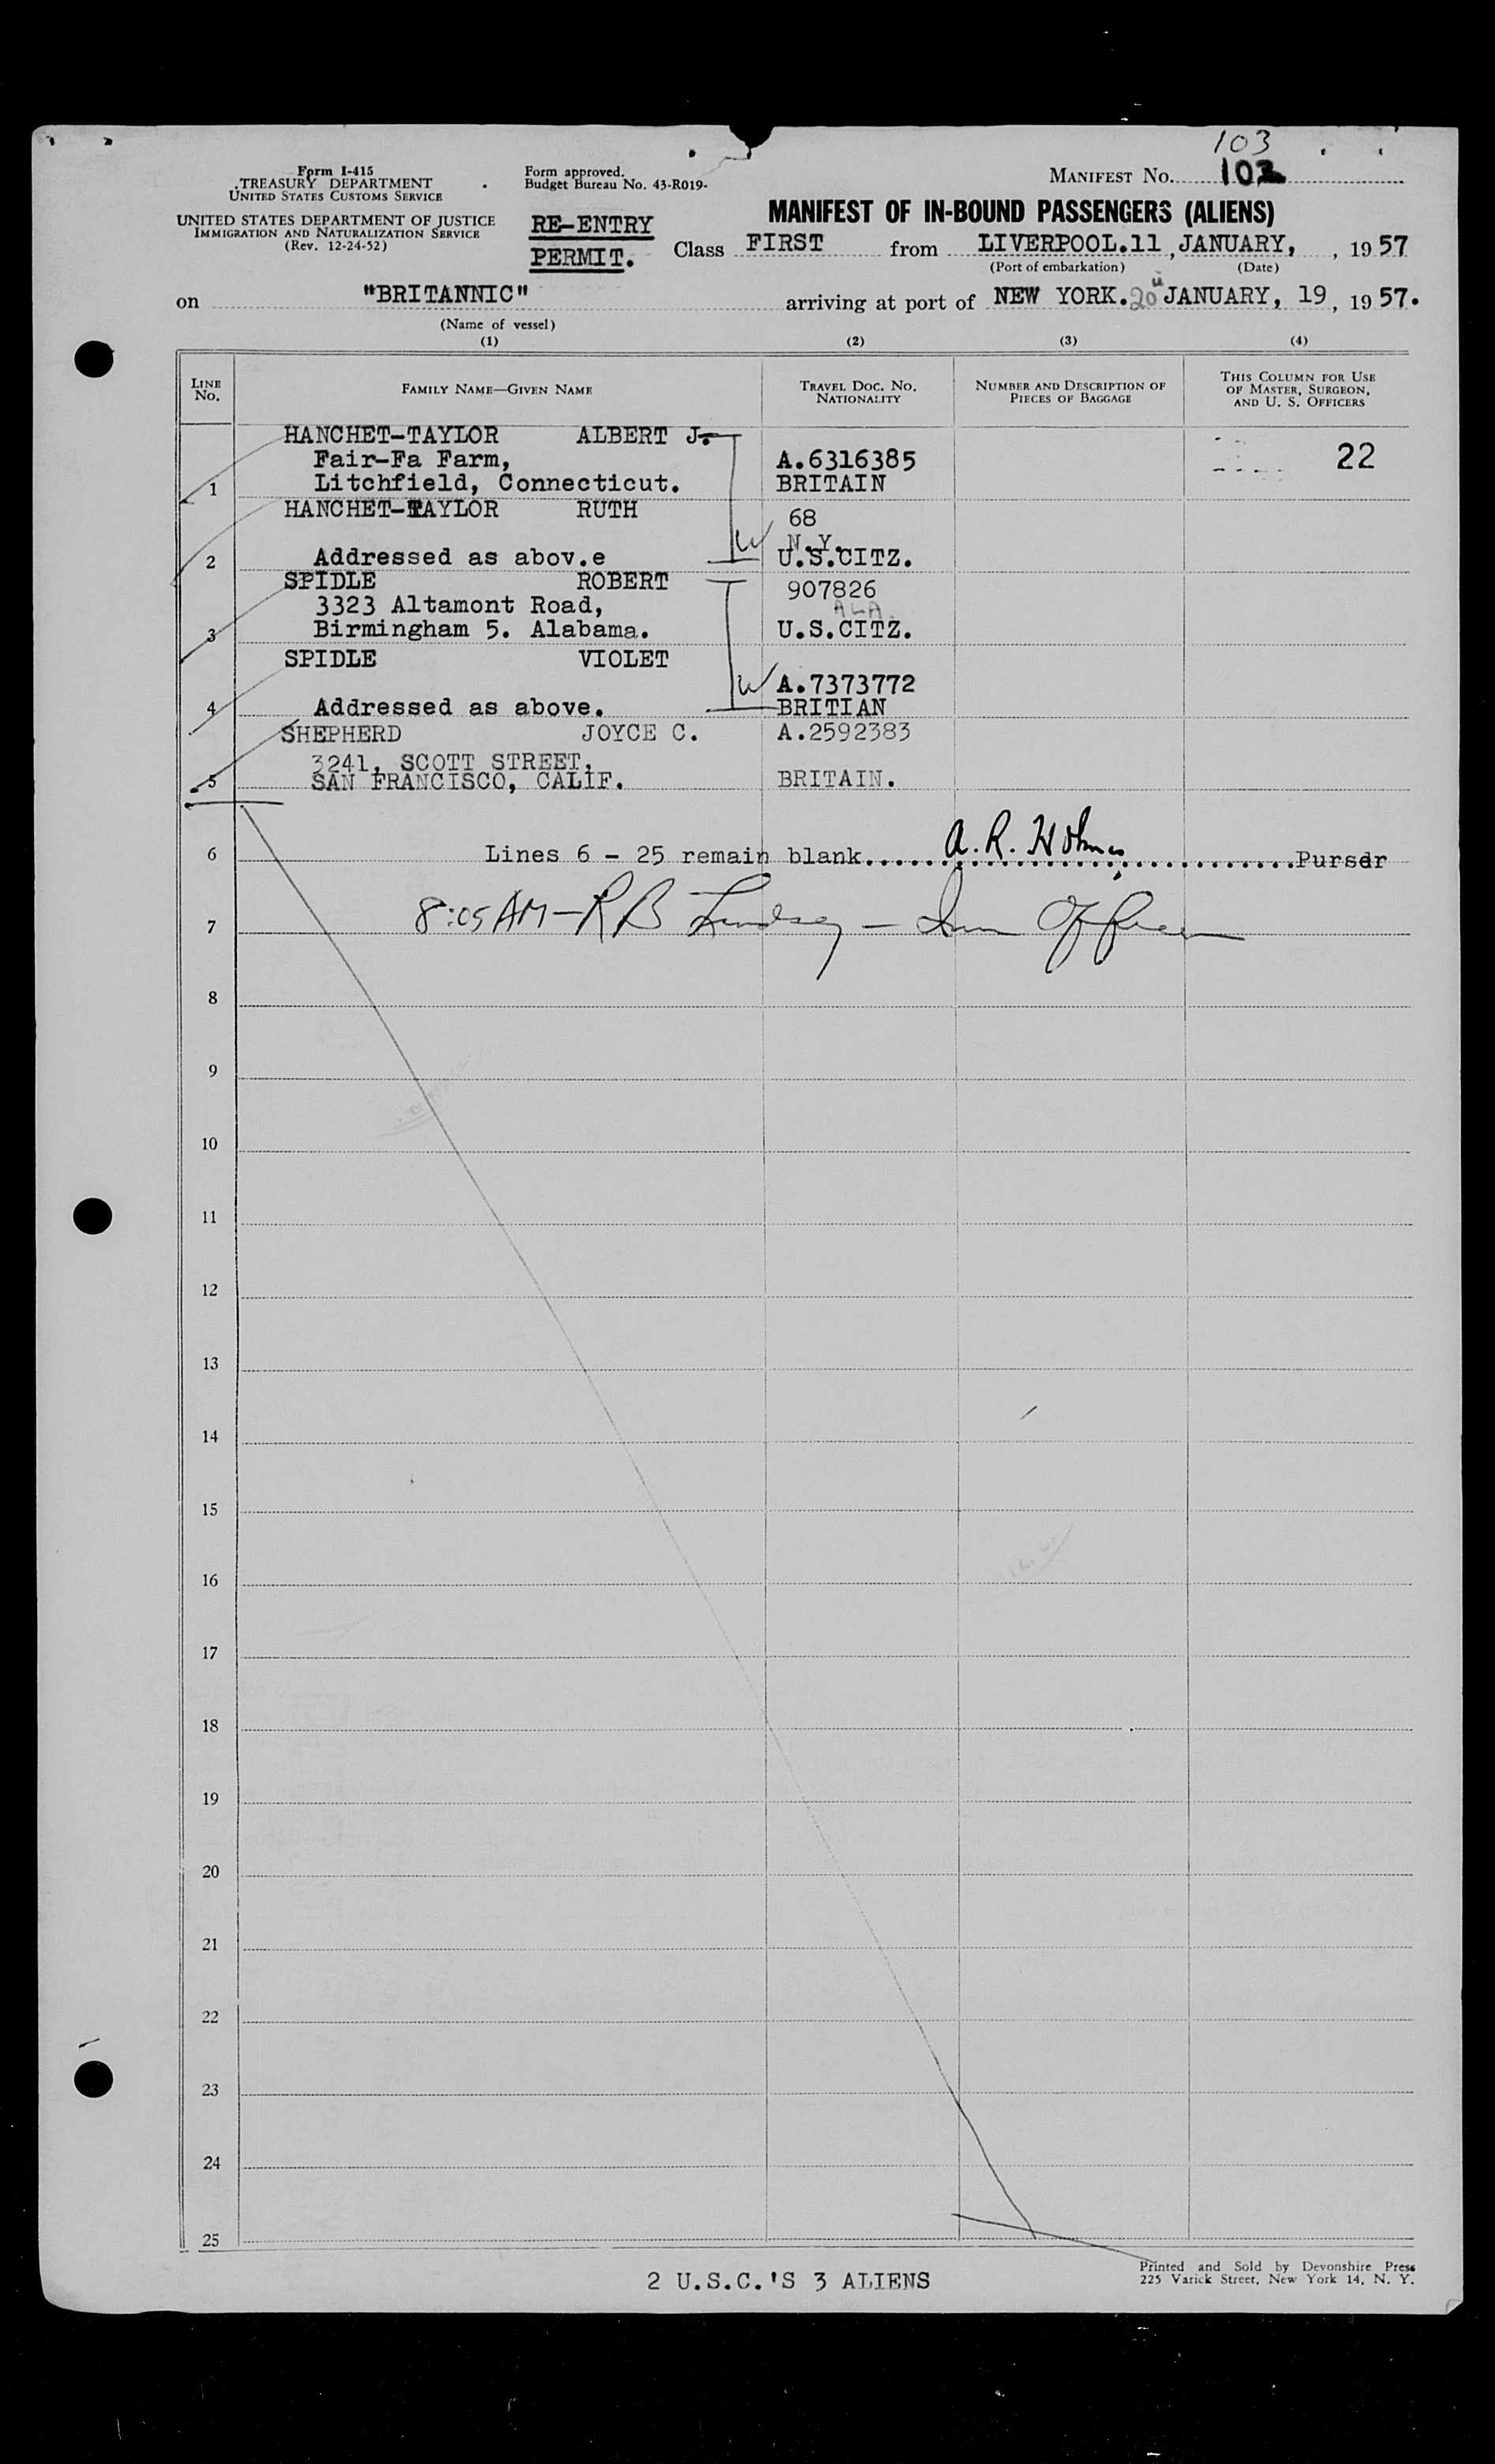 103
Form I-415
TREASURY DEPARTMENT
UNITED STATES CUSTOMS SERVICE
UNITED STATES DEPARTMENT OF JUSTICE
IMMIGRATION AND NATURALIZATION SERVICE
(Rev. 12-24-52)
Form approved.
Budget Bureau No. 43-R019-
RE-ENTRY
PERMIT.
MANIFEST NO. 102
MANIFEST OF IN-BOUND PASSENGERS (ALIENS)
Class FIRST from LIVERPOOL.11, JANUARY, , 19 57
(Port of embarkation) (Date)
on "BRITANNIC" arriving at port of NEW YORK. 20 JANUARY, 19, 19 57.
(Name of vessel)
(1) (2) (3) (4)
LINE NO. FAMILY NAME—GIVEN NAME TRAVEL DOC. NO. NATIONALITY NUMBER AND DESCRIPTION OF PIECES OF BAGGAGE THIS COLUMN FOR USE OF MASTER, SURGEON, AND U. S. OFFICERS
HANCHET-TAYLOR ALBERT J.
Fair-Fa Farm, A.6316385 22
1 Litchfield, Connecticut. BRITAIN
HANCHET-TAYLOR RUTH 68
W N.Y.
2 Addressed as abov.e U.S.CITZ.
SPIDLE ROBERT 907826
3323 Altamont Road, ALA.
3 Birmingham 5. Alabama. U.S.CITZ.
SPIDLE VIOLET
W A.7373772
4 Addressed as above. BRITIAN
SHEPHERD JOYCE C. A.2592383
3241, SCOTT STREET,
5 SAN FRANCISCO, CALIF. BRITAIN.
6 Lines 6 - 25 remain blank. A. R. Holmes Purser
7 8:05 AM - R B Lindsay - Imm Officer
8
9
10
11
12
13
14
15
16
17
18
19
20
21
22
23
24
25
2 U.S.C.'S 3 ALIENS
Printed and Sold by Devonshire Press
225 Varick Street, New York 14, N. Y.